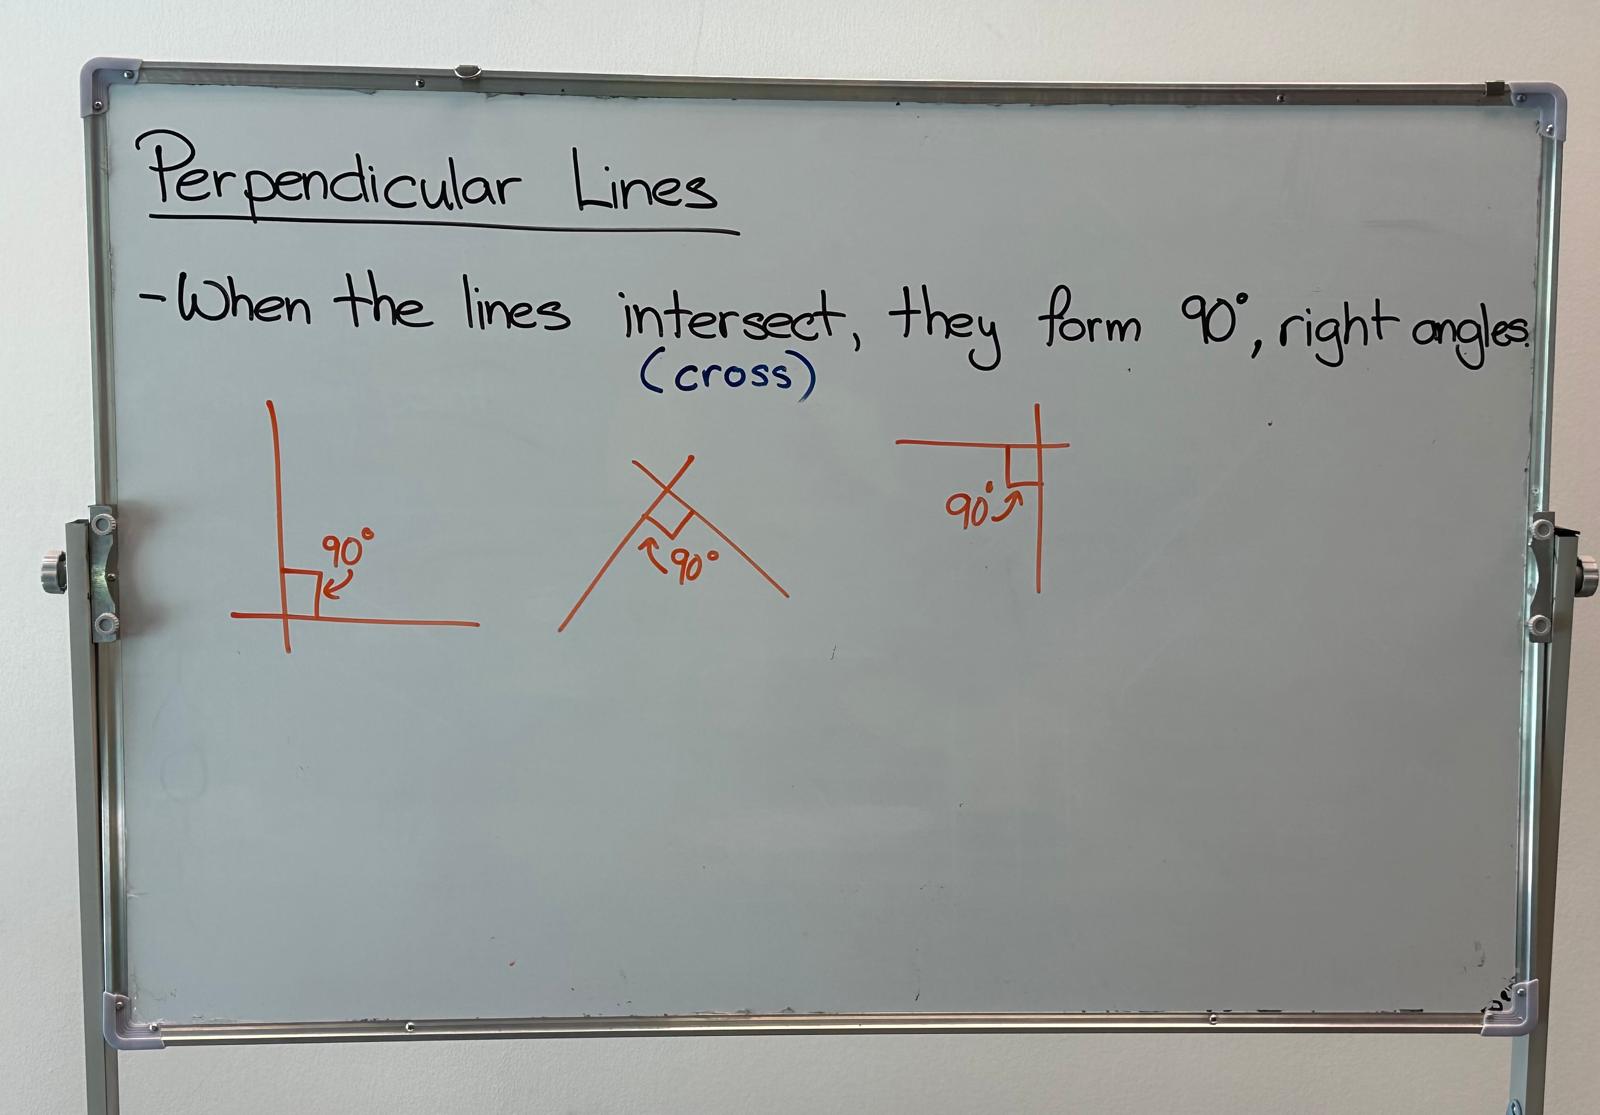 Perpendicular Lines
- When the lines intersect, they form 90°, right angles.
(cross)
90°
90°
90°